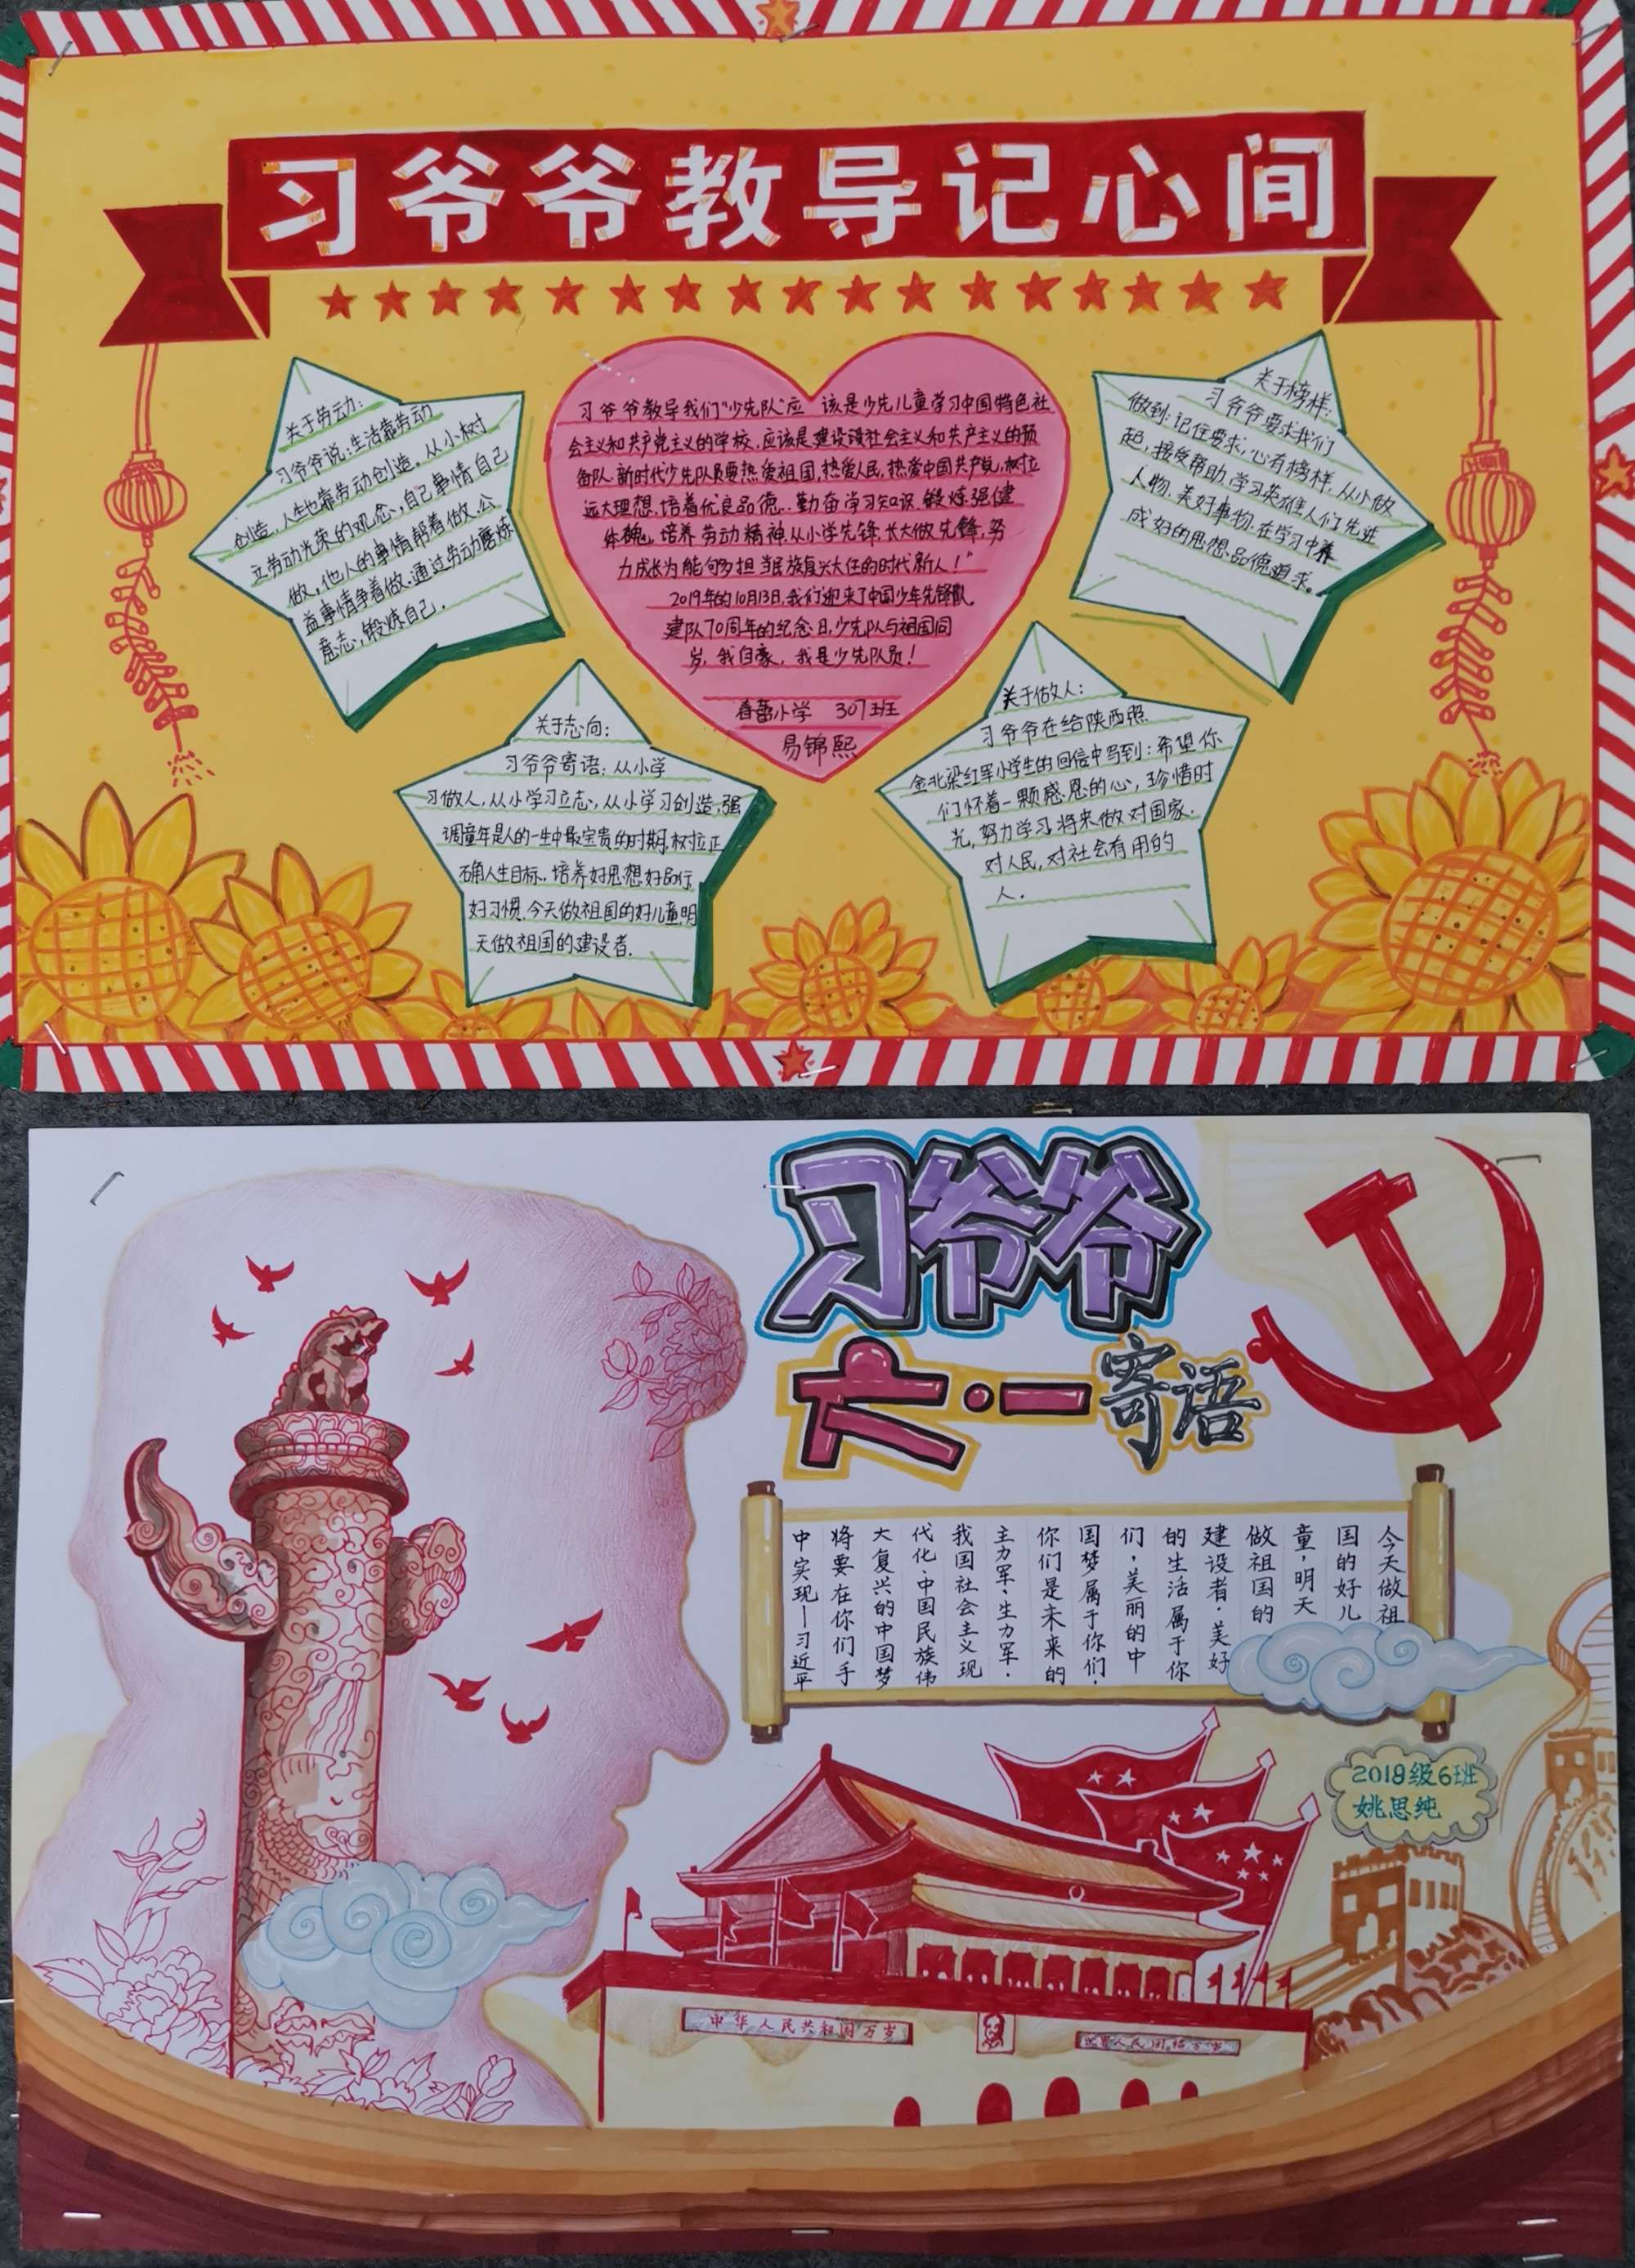 习爷爷教导记心间
关于劳动:
习爷爷说:生活靠劳动
创造,人生也靠劳动创造。从小树
立劳动光荣的观念,自己事情自己
做,他人的事情帮着做,公
益事情争着做.通过劳动磨炼
意志,锻炼自己.
习爷爷教导我们“少先队”应 该是少先儿童学习中国特色社
会主义和共产党主义的学校,应该是建设设社会主义和共产主义的预
备队.新时代少先队员要热爱祖国,热爱人民,热爱中国共产党,树立
远大理想.培着优良品德..勤奋学习知识.锻炼强健
体魄.培养劳动精神.从小学先锋.长大做先锋,努
力成长为能够担当民族复兴大任的时代新人!”
2019年的10月13日,我们迎来了中国少年先锋队
建队70周年的纪念日,少先队与祖国同
岁,我自豪,我是少先队员!
春蕾小学 307班
易锦熙
关于榜样:
习爷爷要求我们
做到:记住要求,心有榜样.从小做
起,接受帮助.学习英雄人们先进
人物.美好事物.在学习中养
成好的思想.品德追求。
关于志向:
习爷爷寄语:从小学
习做人,从小学习立志,从小学习创造,强
调童年是人的一生中最宝贵的时期,树立正
确人生目标.培养好思想好品行
好习惯.今天做祖国的好儿童明
天做祖国的建设者.
关于做人:
习爷爷在给陕西照
金北梁红军小学生的回信中写到:希望你
们怀着一颗感恩的心,珍惜时
光,努力学习将来做对国家.
对人民,对社会有用的
人.
习爷爷
六·一寄语
今天做祖
国的好儿
童,明天
做祖国的
建设者.美好
的生活属于你
们,美丽的中
国梦属于你们.
你们是未来的
主力军、生力军.
我国社会主义现
代化、中国民族伟
大复兴的中国梦
将要在你们手
中实现—习近平
2018级6班
姚思纯
中华人民共和国万岁